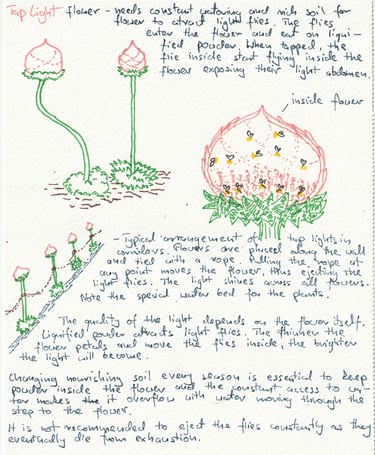 Tap Light flower - needs constant watering and rich soil for
flower to atract light flies. The flies
enter the flower and eat on liqui-
fied powder. When tapped, the
flie inside start flying inside the
flower exposing their light abdomen.
inside flower
Typical arrangement of tap lights in
corridors. Flowers are placed along the wall
and tied with a rope. Pulling the rope at
any point moves the flower, thus ejecting the
light flies. The light shines across all flowers.
Note the special water bed for the plants.
The quality of the light depends on the flower itself.
Liquified powder attracts light flies. The thinner the
flower petals and more the flies inside, the brighter
the light will become.
Changing nourishing soil every season is essential to keep
powder inside the flower and the constant access to wa-
ter makes the it overflow with water moving through the
step to the flower.
It is not recommended to eject the flies constantly as they
eventually die from exhaustion.